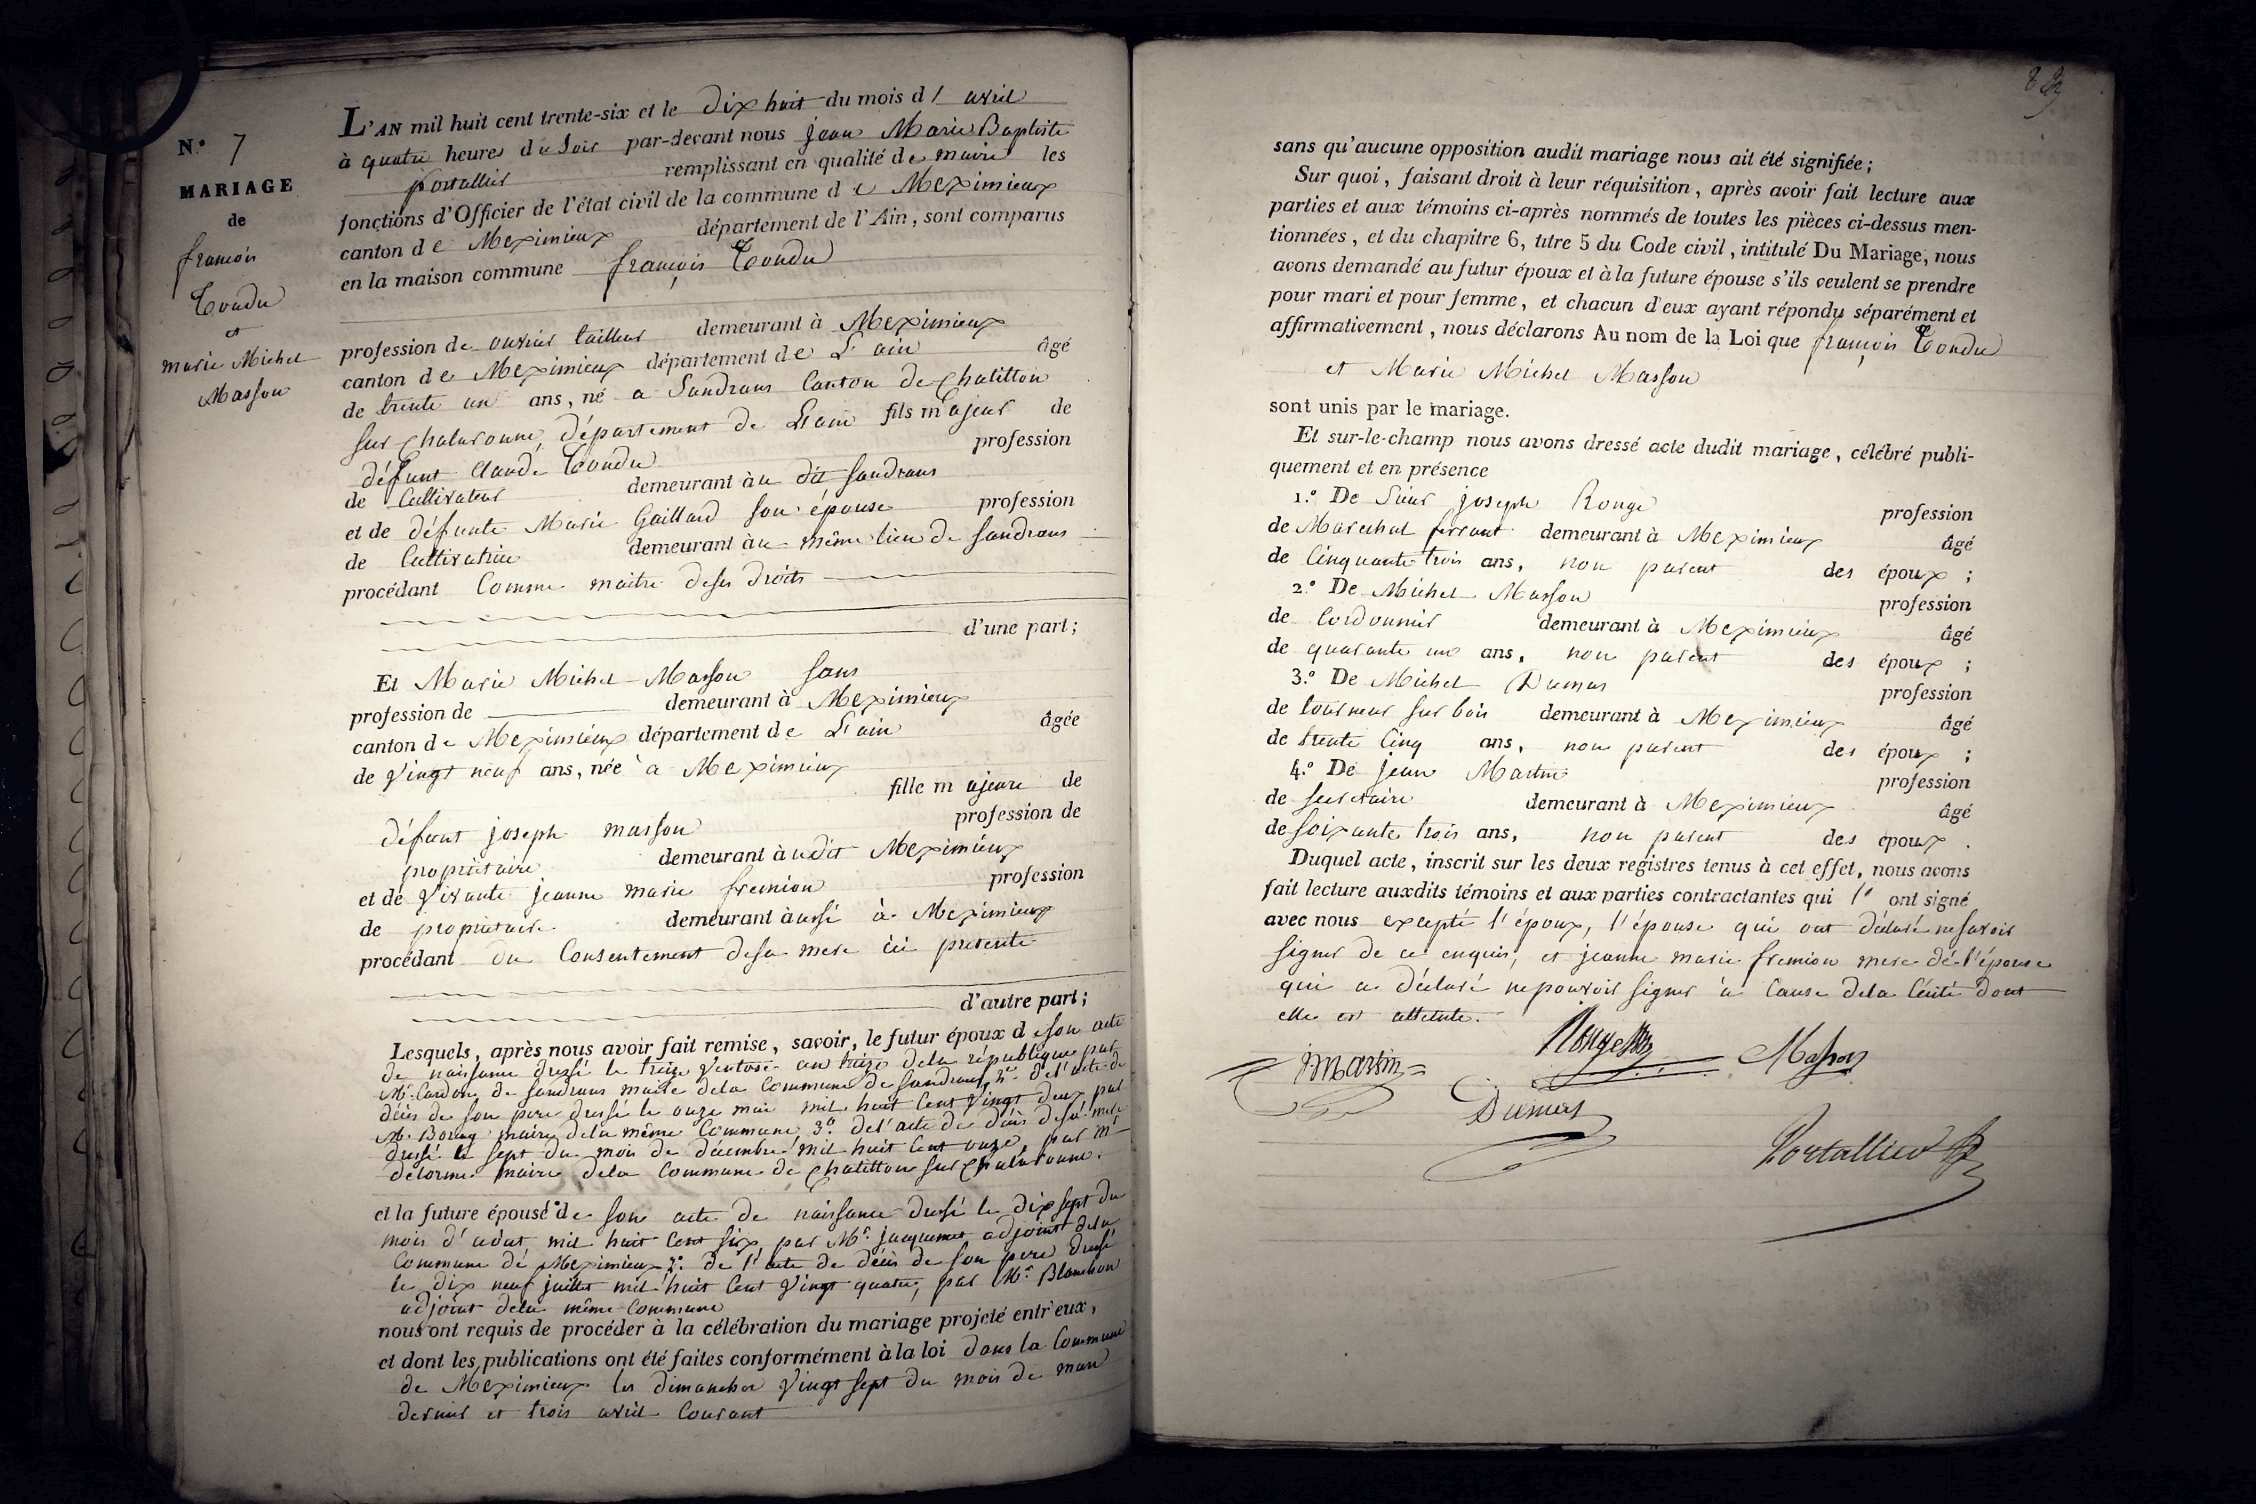 N.° 7
MARIAGE
de
françois
Tondu
et
marie Michel
Masson
L'AN mil huit cent trente-six et le dix huit du mois d' avril
à quatre heures du soir par-devant nous jean Marie Baptiste
Portallier remplissant en qualité de maire les
fonctions d'Officier de l'état civil de la commune de Meximieux
canton de Meximieux département de l'Ain, sont comparus
en la maison commune françois Tondu
profession de ouvrier tailleur demeurant à Meximieux
canton de Meximieux département de L'ain âgé
de trente un ans, né a Sandrans Canton de Chatillon
sur Chalaronne, département de L'ain fils majeur de
défunt Claude Tondu profession
de Cultivateur demeurant àu dit sandrans
et de défunte Marie Gaillard son épouse profession
de Cultivatrice demeurant àu même lieu de sandrans
procédant Comme maitre de ses droits
d'une part;
Et Marie Michel Masson sans
profession de demeurant à Meximieux
canton de Meximieux département de L'ain âgée
de vingt neuf ans, née à Meximieux
fille majeure de
défunt joseph masson profession de
propriétaire demeurant àudit Meximieux
et de vivante jeanne marie fremion profession
de propriétaire demeurant àussi à Meximieux
procédant du Consentement de sa mere ici presente
d'autre part;
Lesquels, après nous avoir fait remise, savoir, le futur époux de son acte
de naissance dressé le treize ventose an treize de la république par
Mr. Cardon de sandrans maire de la Commune de sandrans, 2°. de l'acte de
décès de son pere dressé le onze mai mil huit Cent vingt deux par
Mr. Bourg maire de la même Commune 3°. de l'acte de décès de sa mere
dressé le sept du mois de décembre mil huit Cent onze, par Mr
delorme maire de la Commune de Chatillon sur Chalaronne.
et la future épouse de son acte de naissance dressé le dix sept du
mois d'aout mil huit Cent six par Mr. jacquemet adjoint de la
Commune de Meximieux 2°. de l'acte de décès de son pere dressé
le dix neuf juillet mil huit Cent vingt quatre, par Mr. Blanchon
adjoint de la même Commune
nous ont requis de procéder à la célébration du mariage projeté entr'eux,
et dont les publications ont été faites conformément à la loi dans la Commune
de Meximieux les dimanches vingt sept du mois de mars
dernier et trois avril Courant
sans qu'aucune opposition audit mariage nous ait été signifiée;
Sur quoi, faisant droit à leur réquisition, après avoir fait lecture aux
parties et aux témoins ci-après nommés de toutes les pièces ci-dessus men-
tionnées, et du chapitre 6, titre 5 du Code civil, intitulé Du Mariage, nous
avons demandé au futur époux et à la future épouse s'ils veulent se prendre
pour mari et pour femme, et chacun d'eux ayant répondu séparément et
affirmativement, nous déclarons Au nom de la Loi que françois Tondu
et Marie Michel Masson
sont unis par le mariage.
Et sur-le-champ nous avons dressé acte dudit mariage, célébré publi-
quement et en présence
1.° De Sieur joseph Rouge profession
de Marechal ferrant demeurant à Meximieux âgé
de Cinquante trois ans, non parent des époux ;
2.° De Michel Masson profession
de Cordonnier demeurant à Meximieux âgé
de quarante un ans, non parent des époux ;
3.° De Michel Dumas profession
de tourneur sur bois demeurant à Meximieux âgé
de trente Cinq ans, non parent des époux ;
4.° De jean Martin profession
de secretaire demeurant à Meximieux âgé
de soixante trois ans, non parent des époux .
Duquel acte, inscrit sur les deux registres tenus à cet effet, nous avons
fait lecture auxdits témoins et aux parties contractantes qui l' ont signé
avec nous excepté l'époux, l'épouse qui ont déclaré ne savoir
signer de ce enquis, et jeanne marie fremion mere de l'épouse
qui a déclaré ne pouvoir signer à Cause de la Cécité dont
elle est atteinte.
J. Martin Rouge Masson
Dumas
Portallier